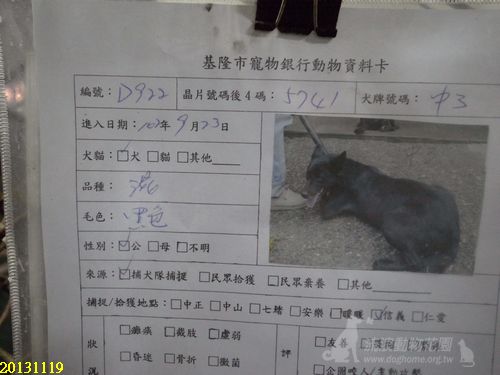 基隆市寵物銀行動物資料卡
編號：D922 晶片號碼後4碼：5741 犬牌號碼：中3
進入日期：102年9月23日
犬貓：☑犬 □貓 □其他
品種：混
毛色：黑色
性別：☑公 □母 □不明
來源：☑捕犬隊捕捉 □民眾拾獲 □民眾棄養 □其他
捕捉/拾獲地點：□中正 □中山 □七堵 □安樂 □暖暖 ☑信義 □仁愛
狀 □癱瘓 □截肢 □虛弱 評 □友善
況 □昏迷 □骨折 □黴菌
www.doghome.org.tw
20131119